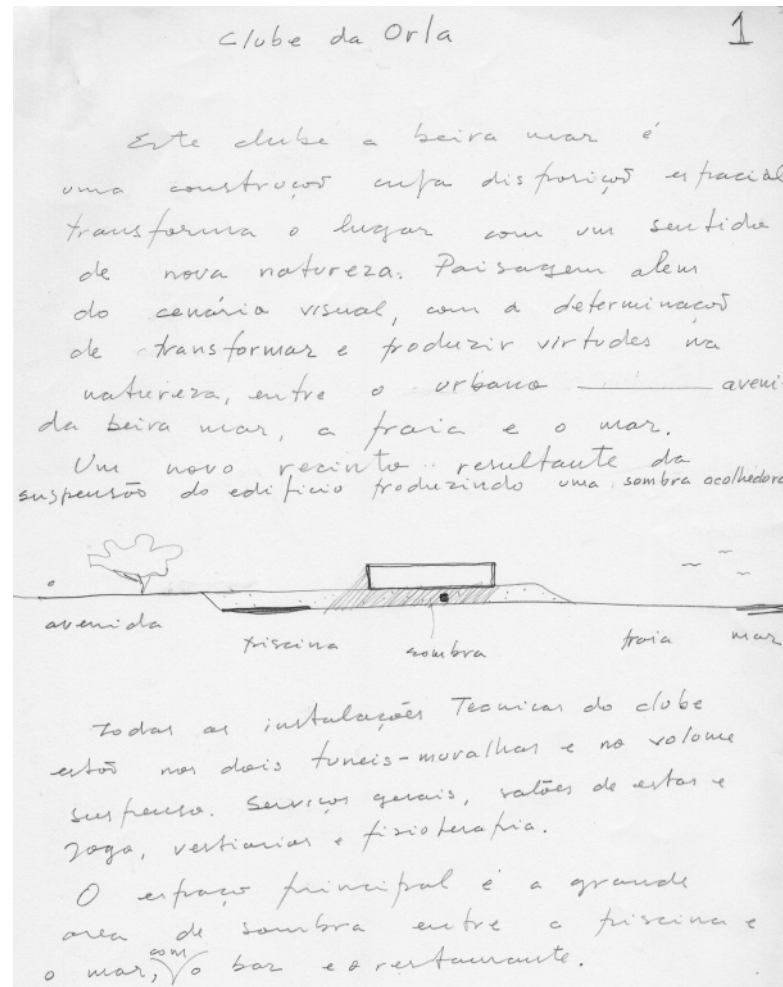 Clube da Orla 1
Este clube a beira mar é
uma construçaõ cuja disposiçaõ espacial
transforma o lugar com um sentido
de nova natureza. Paisagem alem
do cenário visual, com a determinaçaõ
de transformar e produzir virtudes na
natureza, entre o urbano — aveni-
da beira mar, a praia e o mar.
Um novo recinto resultante da
suspensão do edificio produzindo uma sombra acolhedora
avenida piscina sombra praia mar
Todas as instalações Tecnicas do clube
estaõ nos dois tuneis-muralhas e no volume
suspenso. Serviços gerais, salões de estar e
jogo, vestiarios e fisioterapia.
O espaço principal é a grande
area de sombra entre a piscina e
o mar, com o bar e o restaurante.